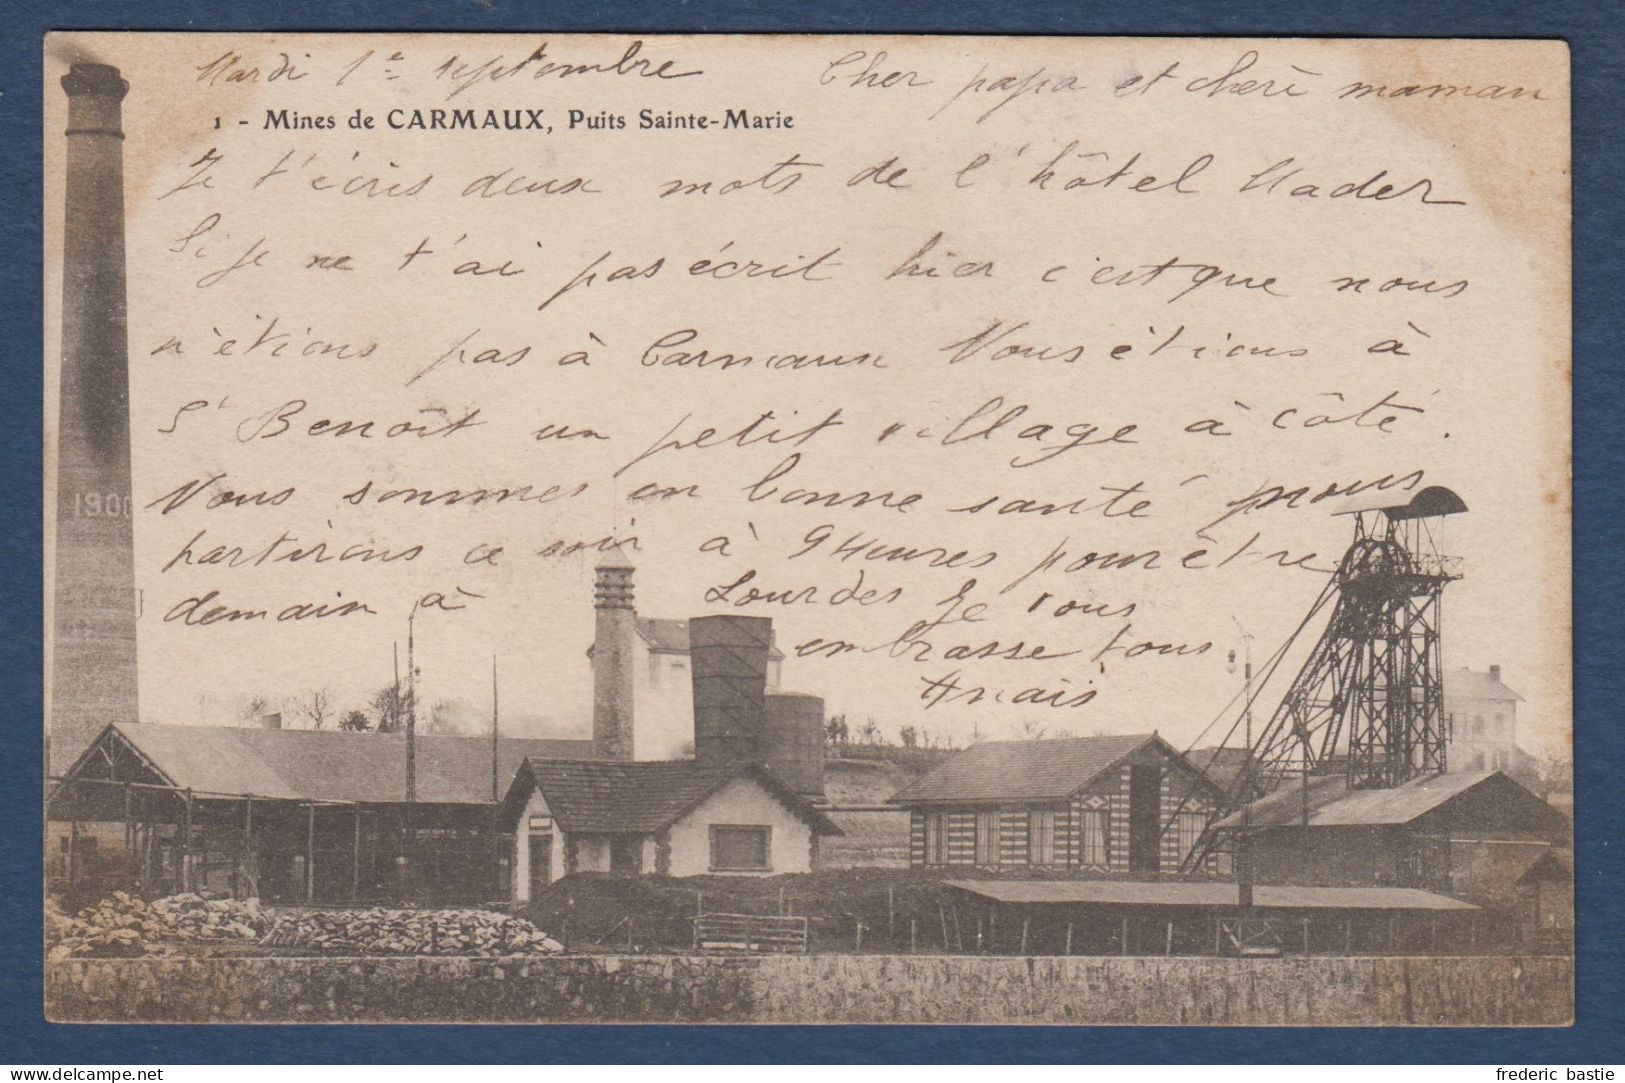 Mardi 1er septembre Cher papa et chère maman
1 - Mines de CARMAUX, Puits Sainte-Marie
Je t'écris deux mots de l'hôtel Nader
Si je ne t'ai pas écrit hier c'est que nous
n'étions pas à Carmaux Nous étions à
St Benoît un petit village à côté.
Nous sommes en bonne santé nous
partirons ce soir à 9 Heures pour être
demain à Lourdes Je vous
embrasse tous
Anaïs
1900
frederic bastie